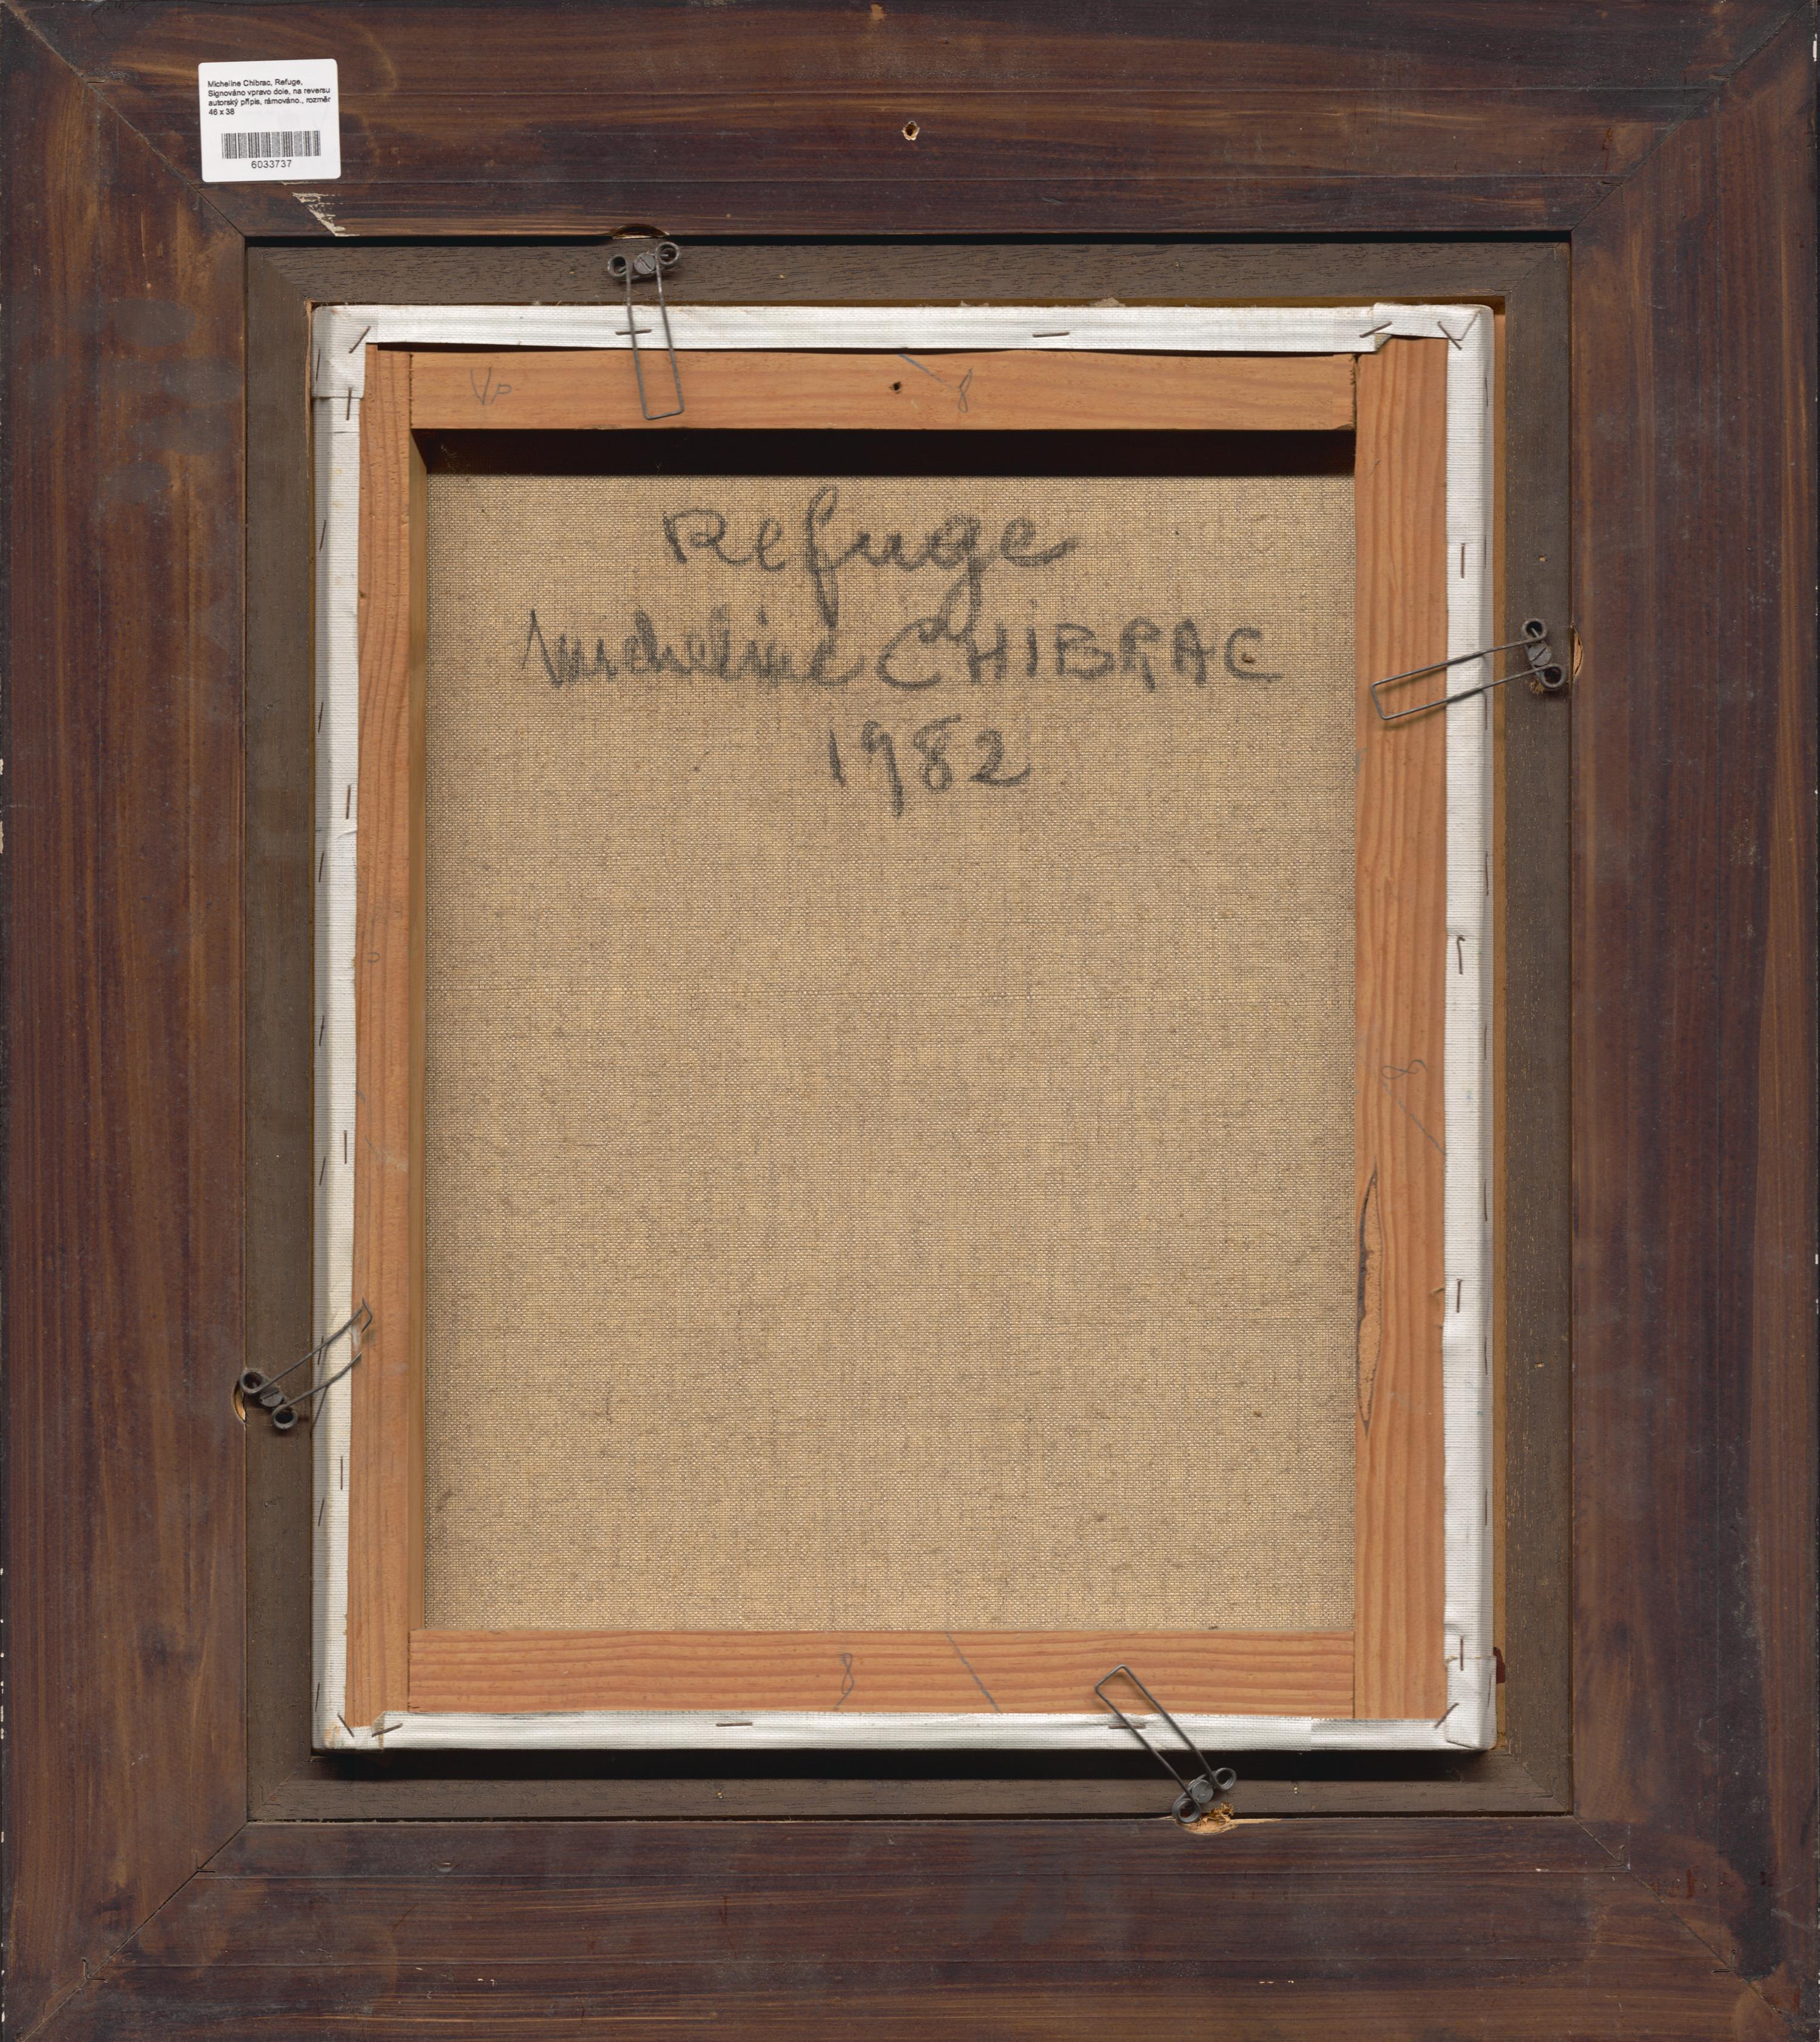 Micheline Chibrac, Refuge,
Signováno vpravo dole, na reversu
autorský přípis, rámováno., rozměr
46 x 38
6033737
Vp
8
Refuge
Micheline CHIBRAC
1982
8
8